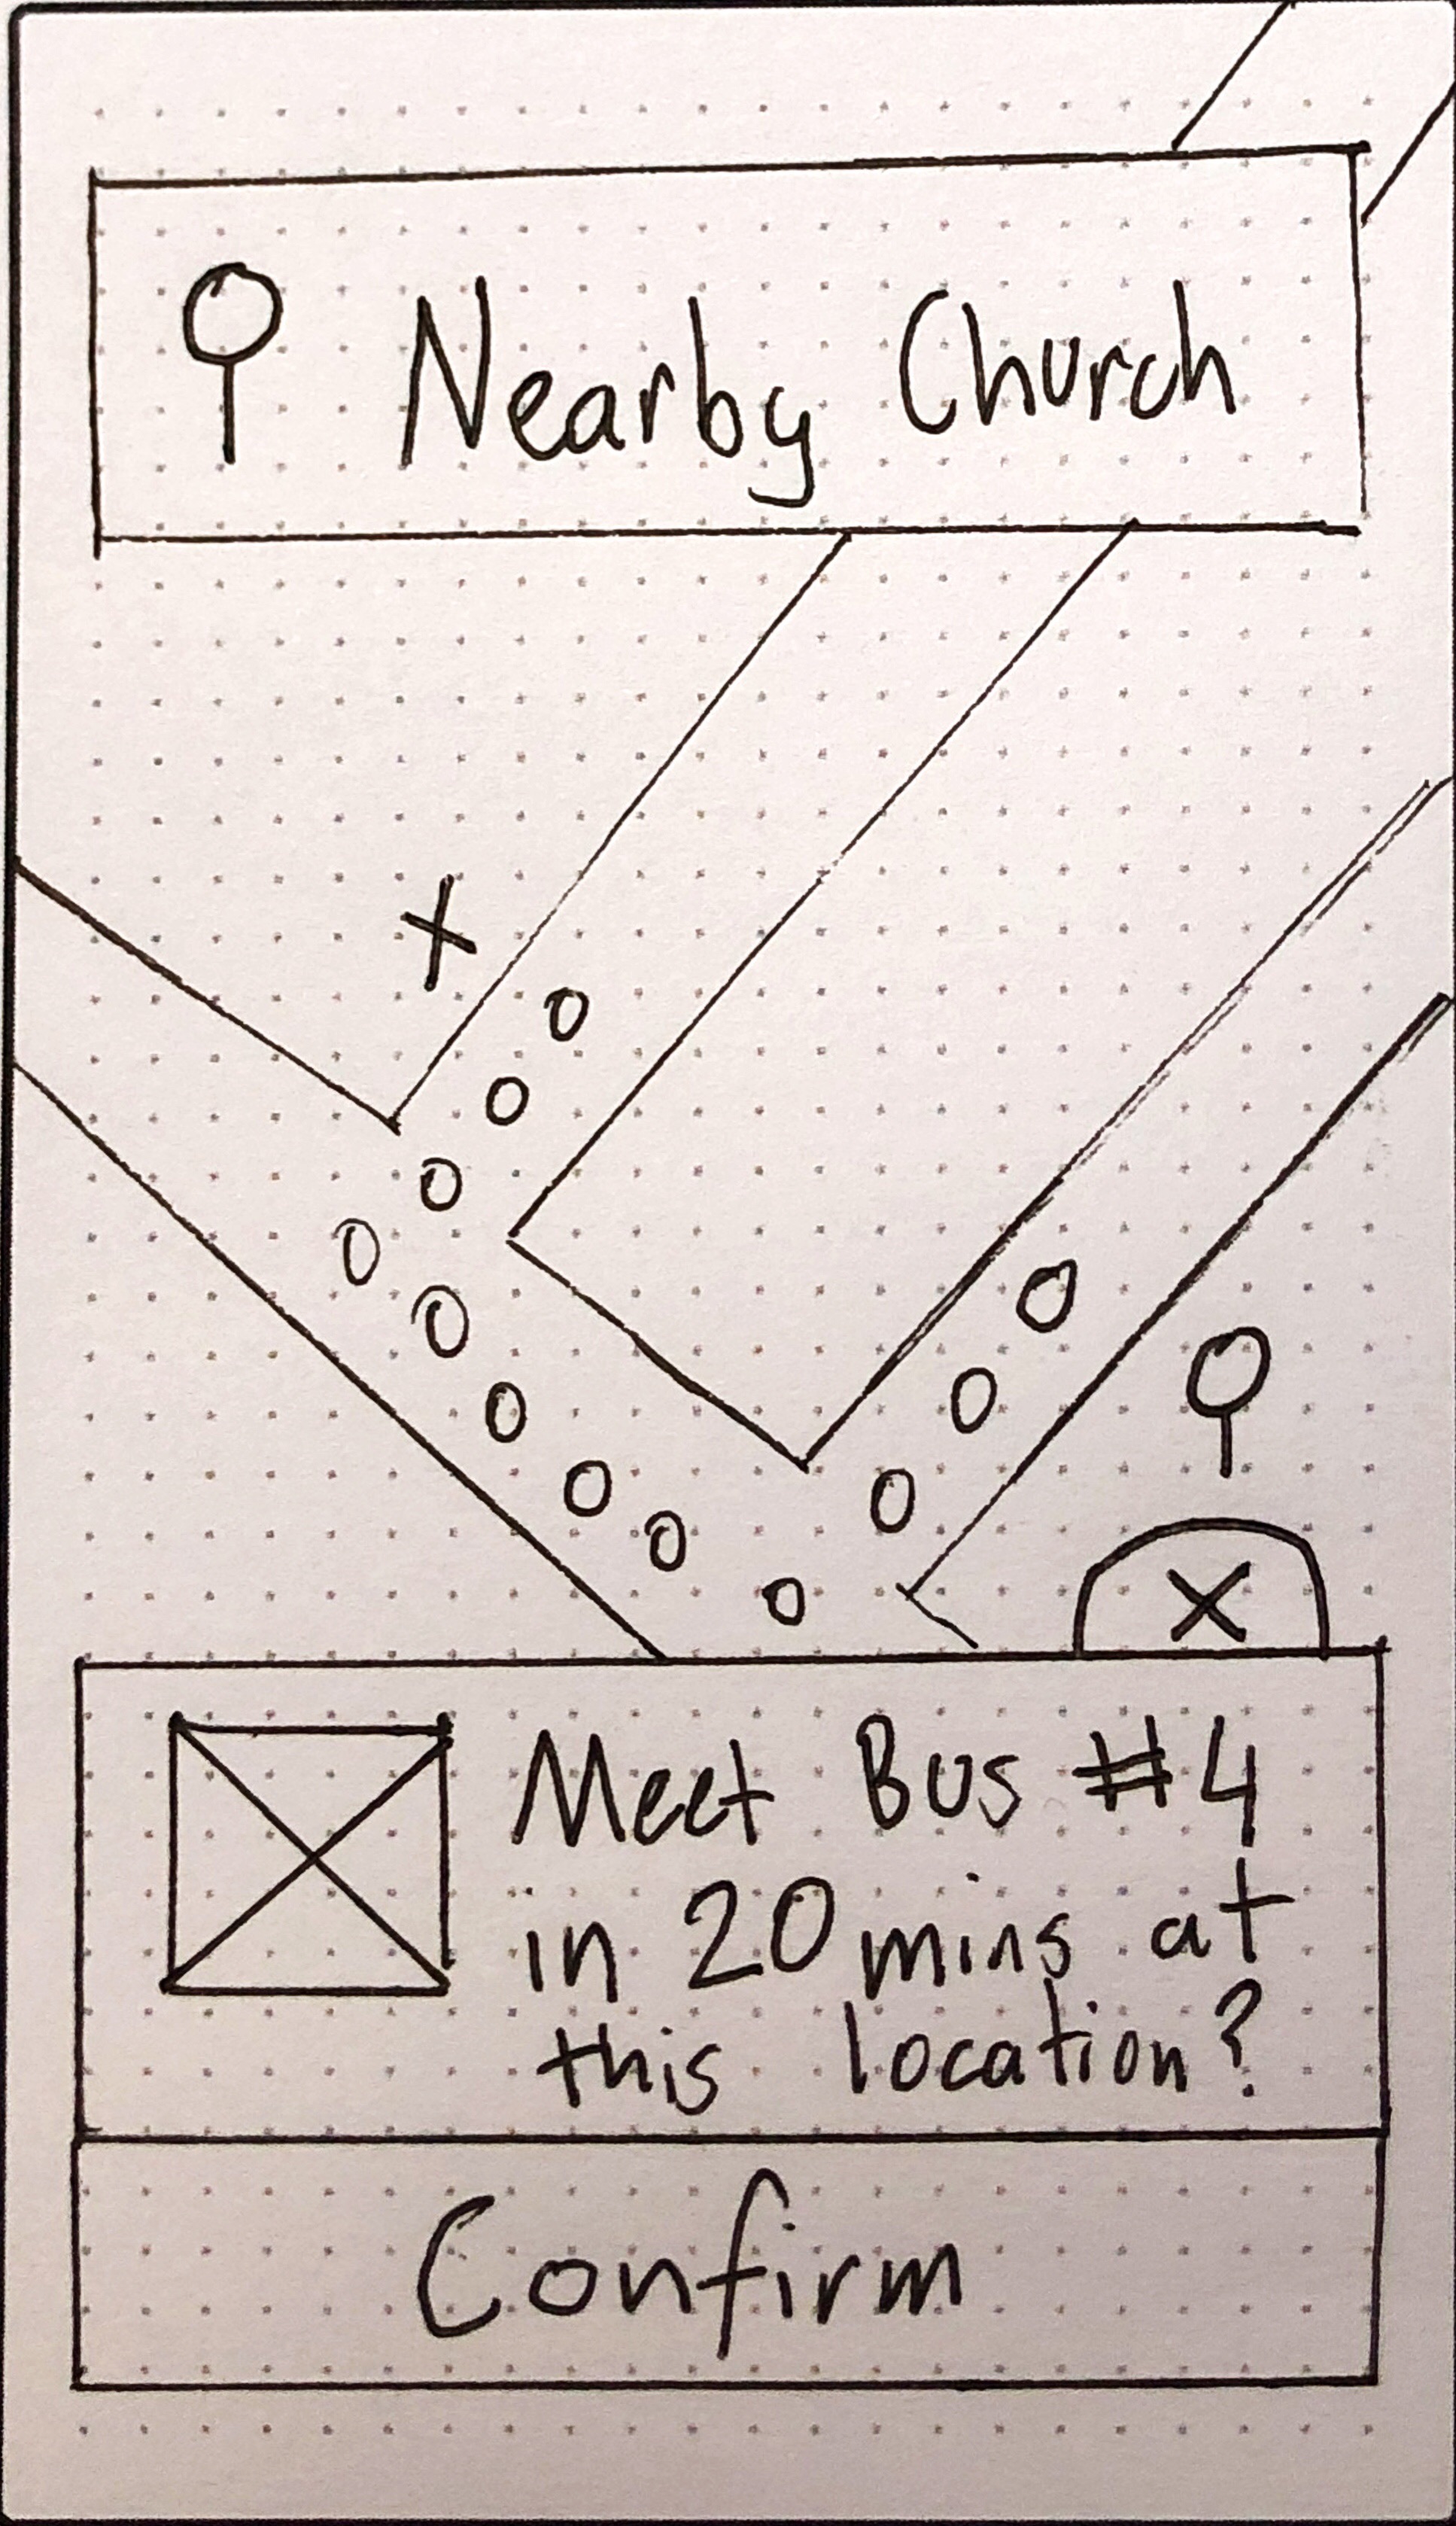 Nearby Church
X
X
Meet Bus #4
in 20 mins at
this location?
Confirm